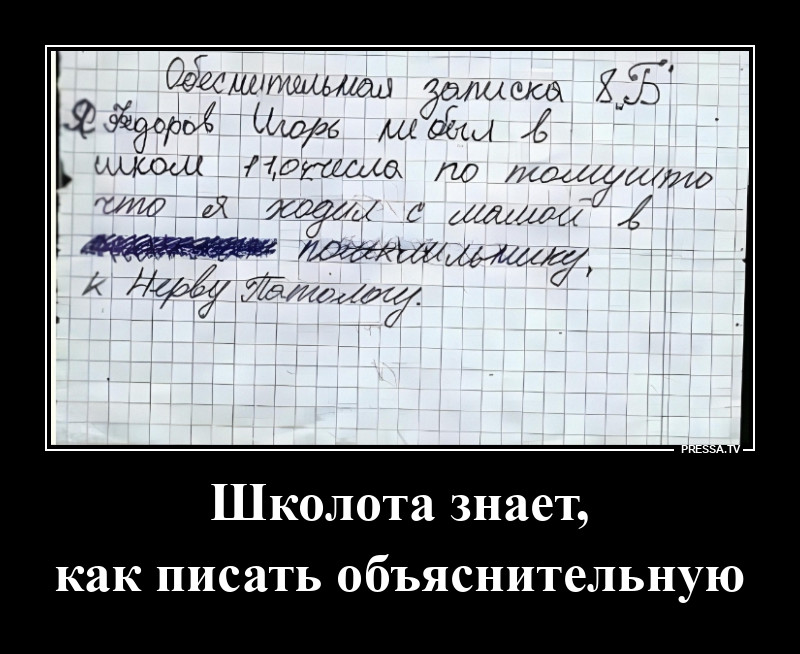 Обеснительная записка 8„Б"
Я Федоров Игорь не был в
школе 11,04 числа по томушто
что я ходил с мамой в
поликлильнику,
к Нерву Патологу.
PRESSA.TV
Школота знает,
как писать объяснительную